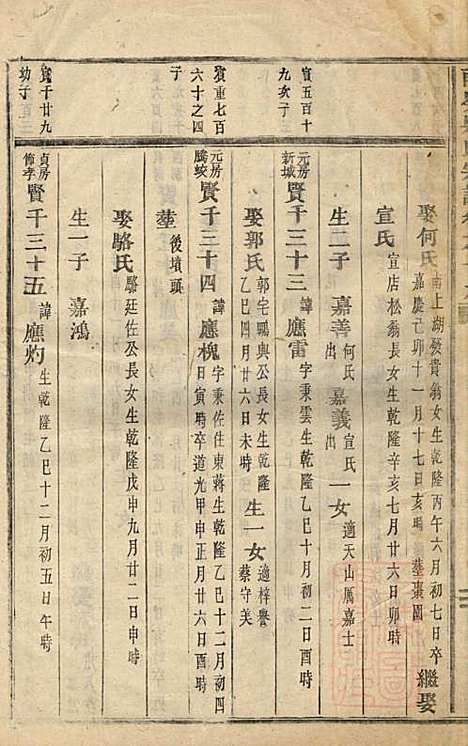 娶何氏 南上湖發貴翁女生乾隆丙午六月初七日卒
嘉慶己卯十一月十七日亥時葬棗園 繼娶
宣氏 宣店松翁長女生乾隆辛亥七月廿六日卯時
生二子 嘉善 何氏出 嘉義 宣氏出 一女 適天山厲嘉士
實五百十
九次子
元房
新城 賢千三十三 諱應雷 字秉雲生乾隆乙巳十月初二日酉時
娶郭氏 郭宅鳴輿公長女生乾隆
乙巳四月廿六日未時 生一女 適梓譽
蔡守美
賓重七百
六十之四
元房
騰蛟 賢千三十四 諱應槐 字秉佐住東蔣生乾隆乙巳十二月初四
日寅時卒道光甲申正月廿六日酉時
子
葬 後墳頭
娶駱氏 駱廷佐公長女生乾隆戊申九月廿二日申時
生一子 嘉鴻
實千廿九
幼子
貞房
賢千三十五 諱應灼 生乾隆乙巳十二月初五日午時